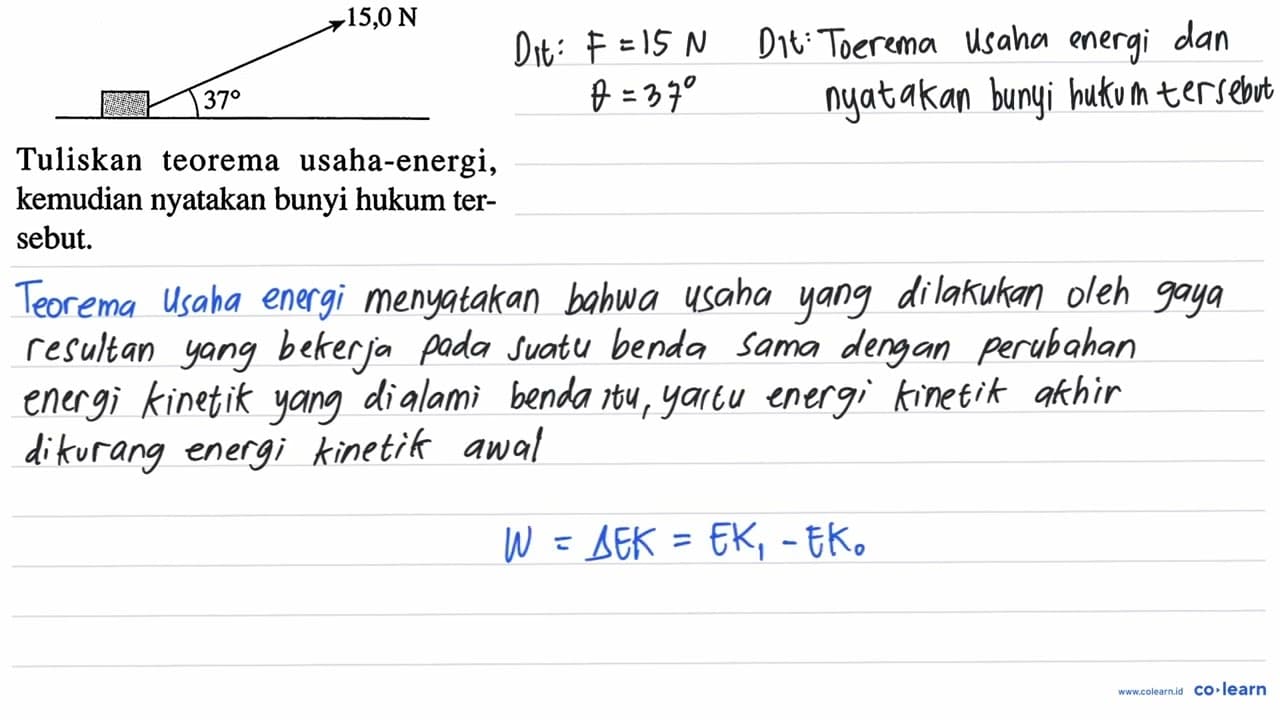 15,0 N
37°
Tuliskan teorema usaha-energi,
kemudian nyatakan bunyi hukum ter-
sebut.
Dit: F = 15 N
θ = 37°
Dit: Toerema Usaha energi dan
nyatakan bunyi hukum tersebut
Teorema Usaha energi menyatakan bahwa usaha yang dilakukan oleh gaya
resultan yang bekerja pada suatu benda sama dengan perubahan
energi kinetik yang dialami benda itu, yaitu energi kinetik akhir
dikurang energi kinetik awal
W = ΔEK = EK₁ - EK₀
www.colearn.id co·learn